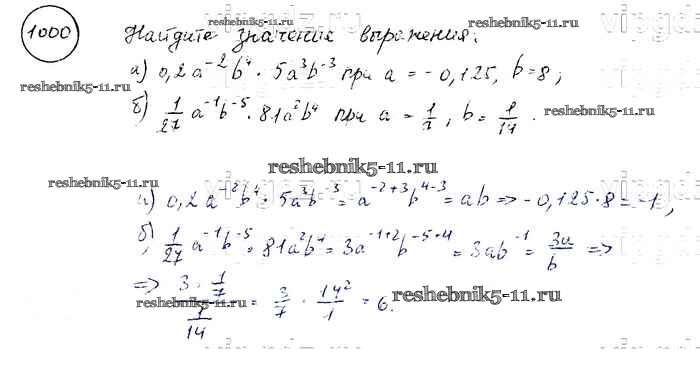 1000
Найдите значение выражения:
а) 0,2a⁻²b⁴ · 5a³b⁻³ при a = -0,125, b = 8;
б) 1/27 a⁻¹b⁻⁵ · 81a²b⁴ при a = 1/7, b = 1/14.
а) 0,2a⁻²b⁴ · 5a³b⁻³ = a⁻²⁺³b⁴⁻³ = ab => -0,125·8 = -1,
б) 1/27 a⁻¹b⁻⁵ · 81a²b⁴ = 3a⁻¹⁺²b⁻⁵⁺⁴ = 3ab⁻¹ = 3a/b =>
=> (3 · 1/7)/(1/14) = 3/7 · 14²/1 = 6.
reshebnik5-11.ru
reshebnik5-11.ru
reshebnik5-11.ru
reshebnik5-11.ru
reshebnik5-11.ru
reshebnik5-11.ru
reshebnik5-11.ru
reshebnik5-11.ru
reshebnik5-11.ru